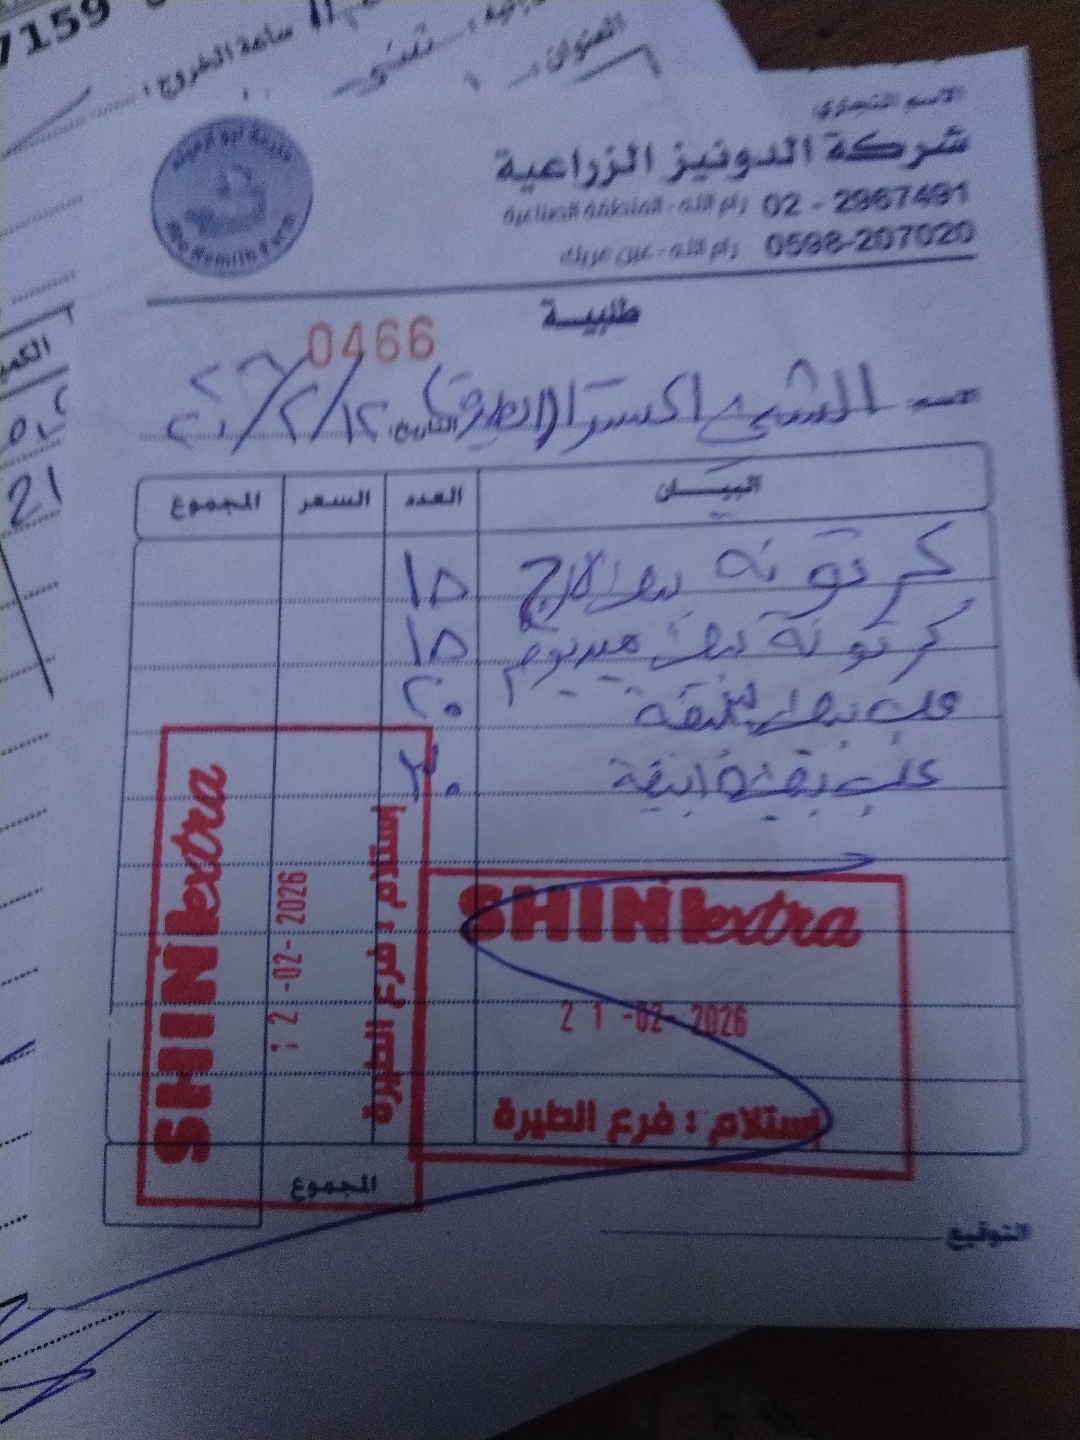 7159
ساعة الخروج :
العنوان
الاسم التجاري
شركة الدونيز الزراعية
02 - 2967491 رام الله - المنطقة الصناعية
0598-207020 رام الله - عين عريك
مزرعة ابو ارميله
Abu Remilih Farm
طلبية
0466
الاسم الشني اكسترا الطيرة التاريخ ١٢/٢/٢٠٢٦
البيــان العدد السعر المجموع
كرتونة بيض لارج ١٥
كرتونة بيض ميديوم ١٥
علب بيض ٢٠
علب بيض انيقة ٣٠
SHINI extra
12-02-2026
إستلام : فرع الطيرة
SHINI extra
21-02-2026
إستلام : فرع الطيرة
المجموع
التوقيع
21